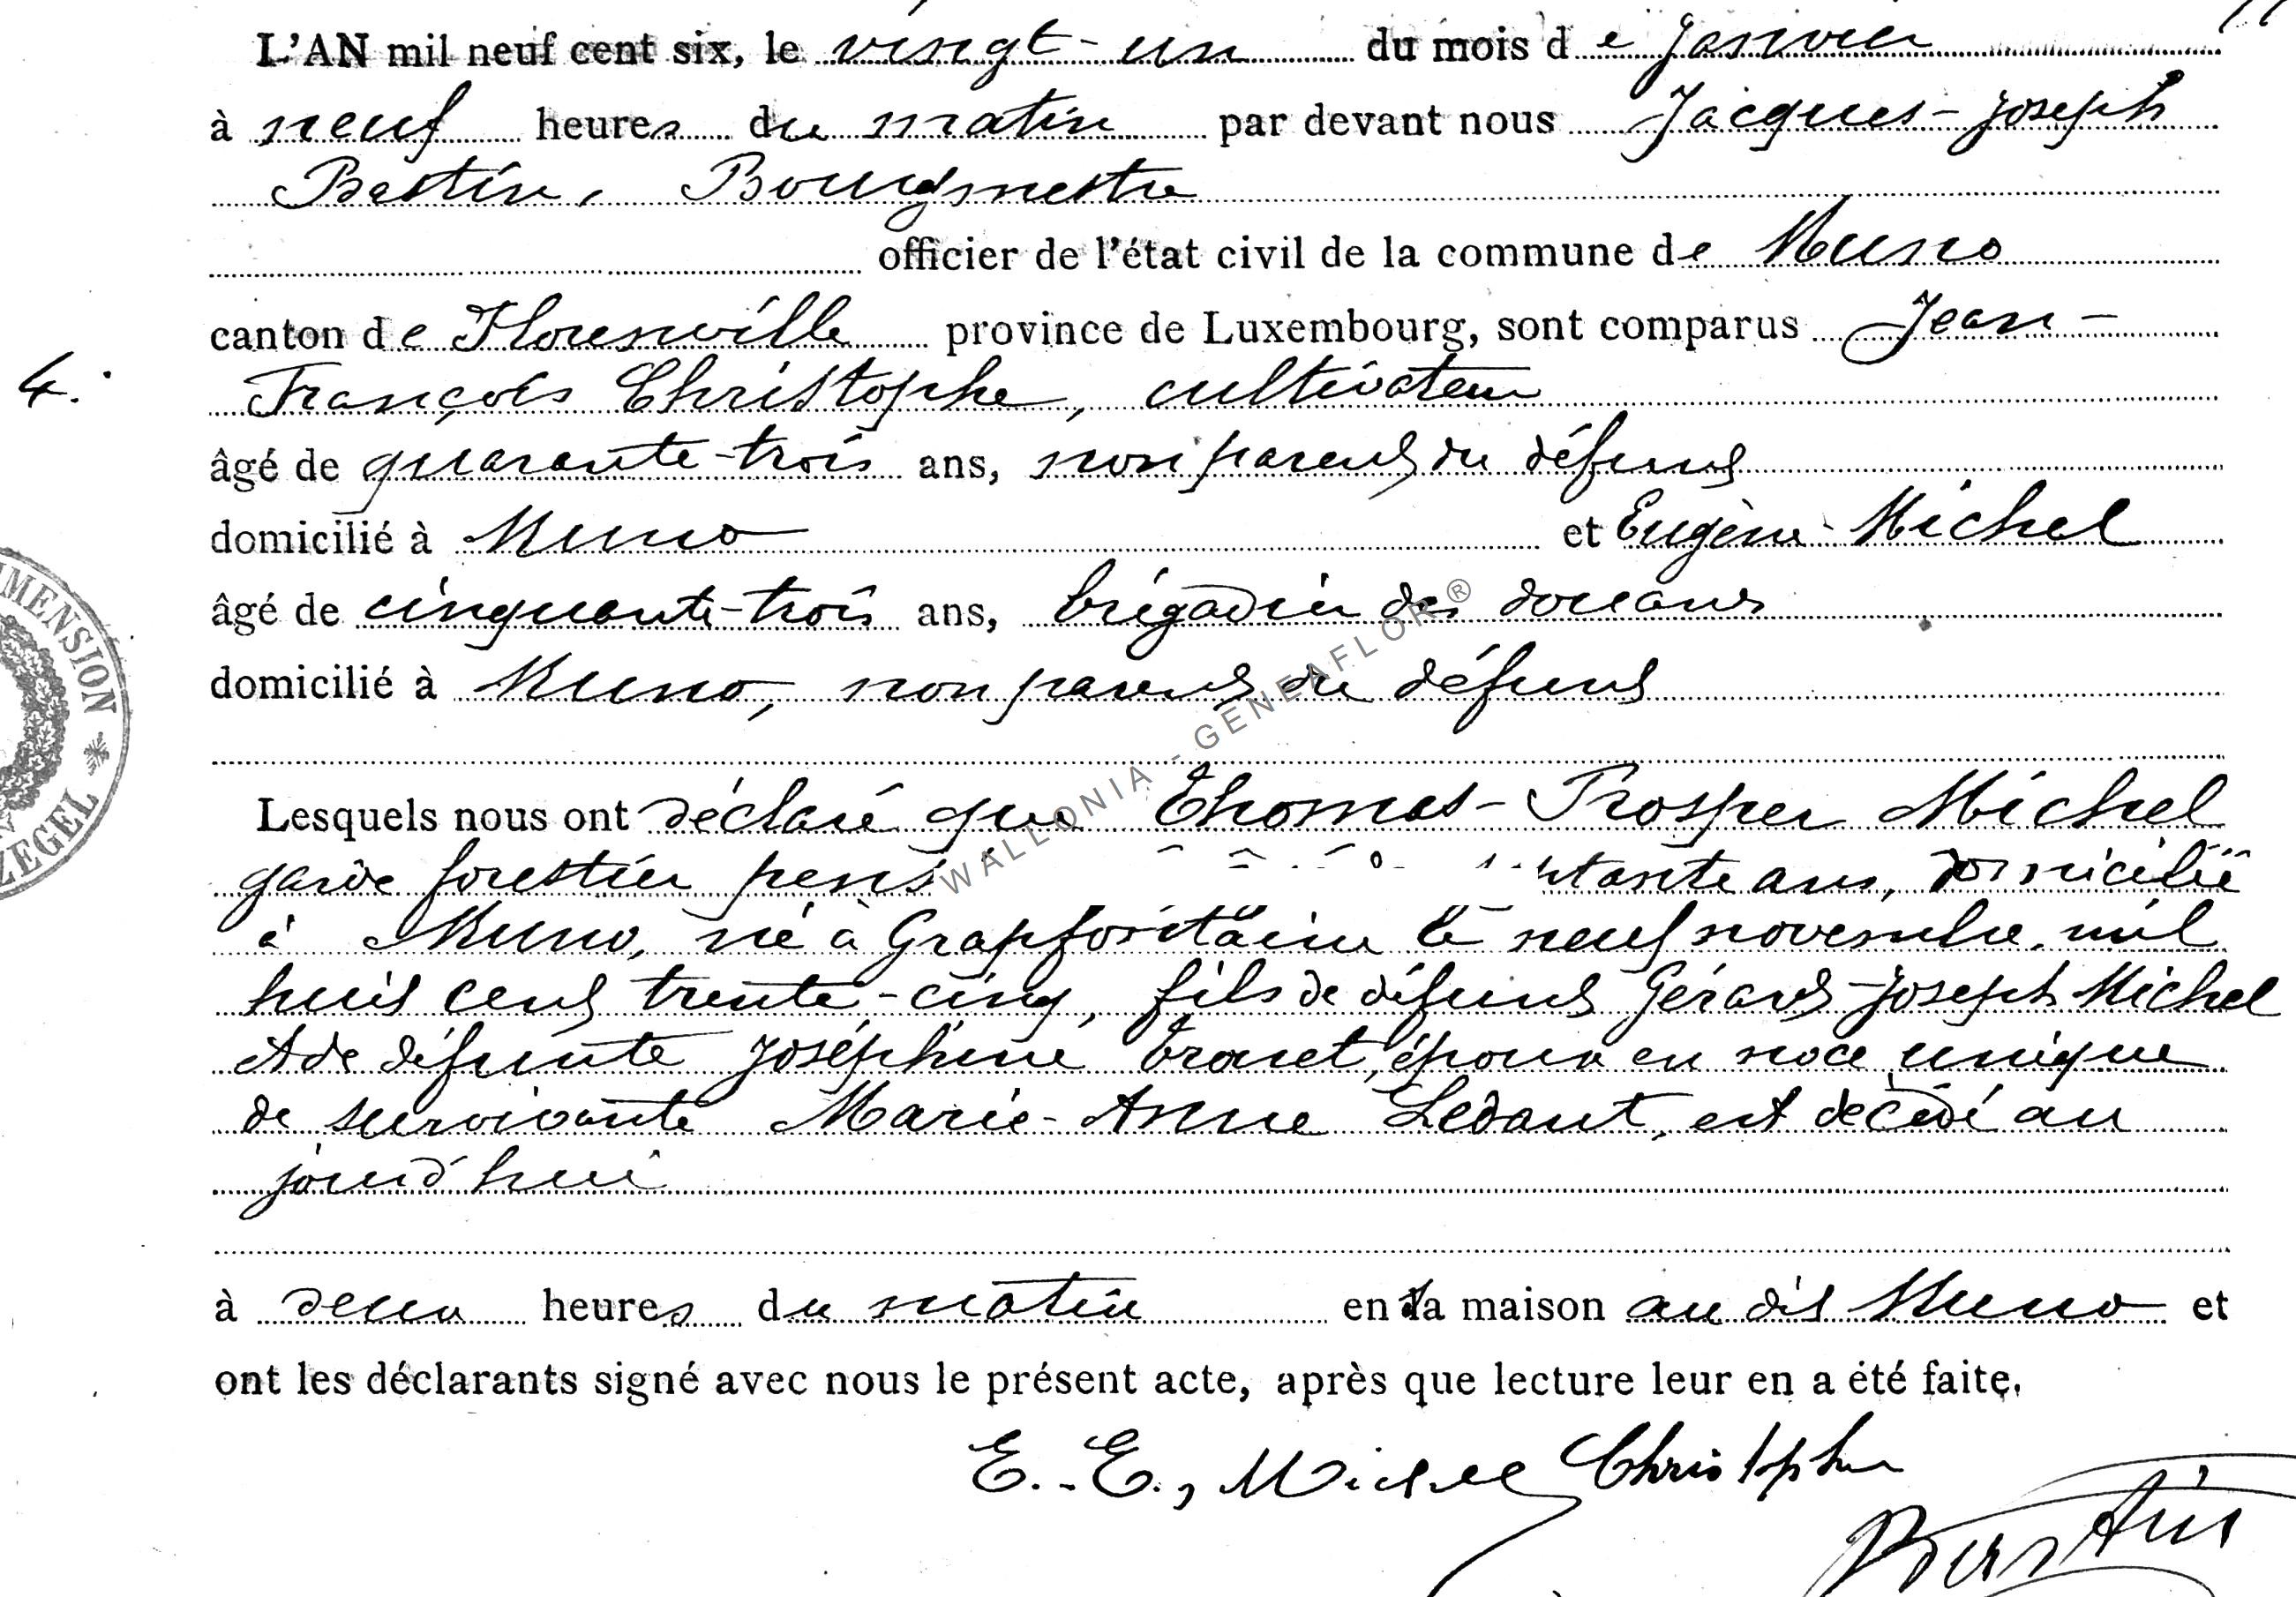 L'AN mil neuf cent six, le vingt-un du mois de Janvier
à neuf heures du matin par devant nous Jacques-Joseph
Bastin, Bourgmestre
officier de l'état civil de la commune de Muno
canton de Florenville province de Luxembourg, sont comparus Jean-
4.
François Christophe, cultivateur
âgé de quarante-trois ans, non parent du défunt
domicilié à Muno et Eugène Michel
âgé de cinquante-trois ans, brigadier des douanes
domicilié à Muno, non parent du défunt
MENSION * ZEGEL
WALLONIA - GENEAFLOR®
Lesquels nous ont déclaré que Thomas-Prosper Michel
garde forestier ans, domicilié
à Muno, né à Grapfontaine le neuf novembre mil
huit cent trente-cinq, fils de défunt Gérard-Joseph Michel
et de défunte Joséphine, époux en noce unique
de survivante Marie-Anne Ledant, est décédé au
jourd'hui
à deux heures du matin en sa maison au dit Muno et
ont les déclarants signé avec nous le présent acte, après que lecture leur en a été faite.
E.-E., Michel Christophe
Bastin